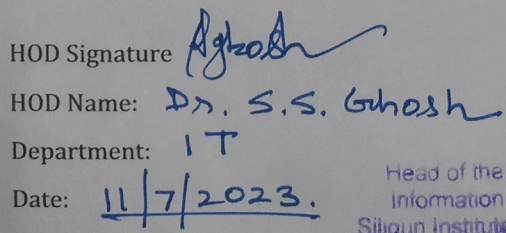 HOD Signature
HOD Name: Dr. S.S. Ghosh
Department: IT
Date: 11/7/2023.
Head of the
Information
Siliguri Institute